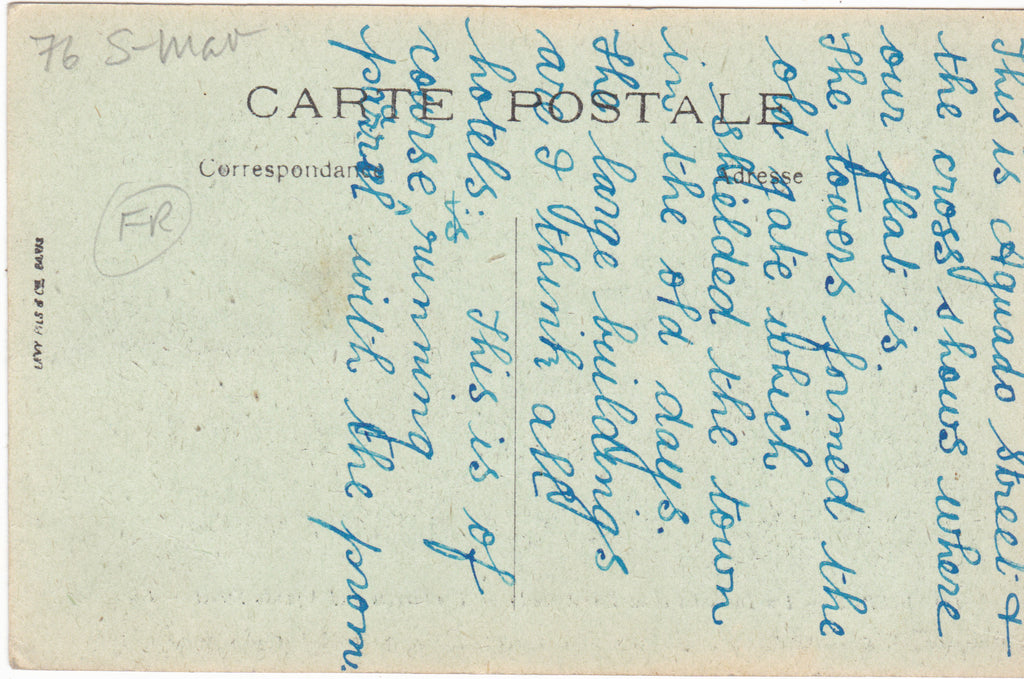 76 S-Mar
CARTE POSTALE
Correspondance
Adresse
FR
LEVY FILS & Cie PARIS
This is Aguado Street +
the cross shows where
our flat is.
The towers formed the
old gate which
shielded the town
in the old days.
The large buildings
are I think all
hotels. This is of
course, running
parrel with the prom.